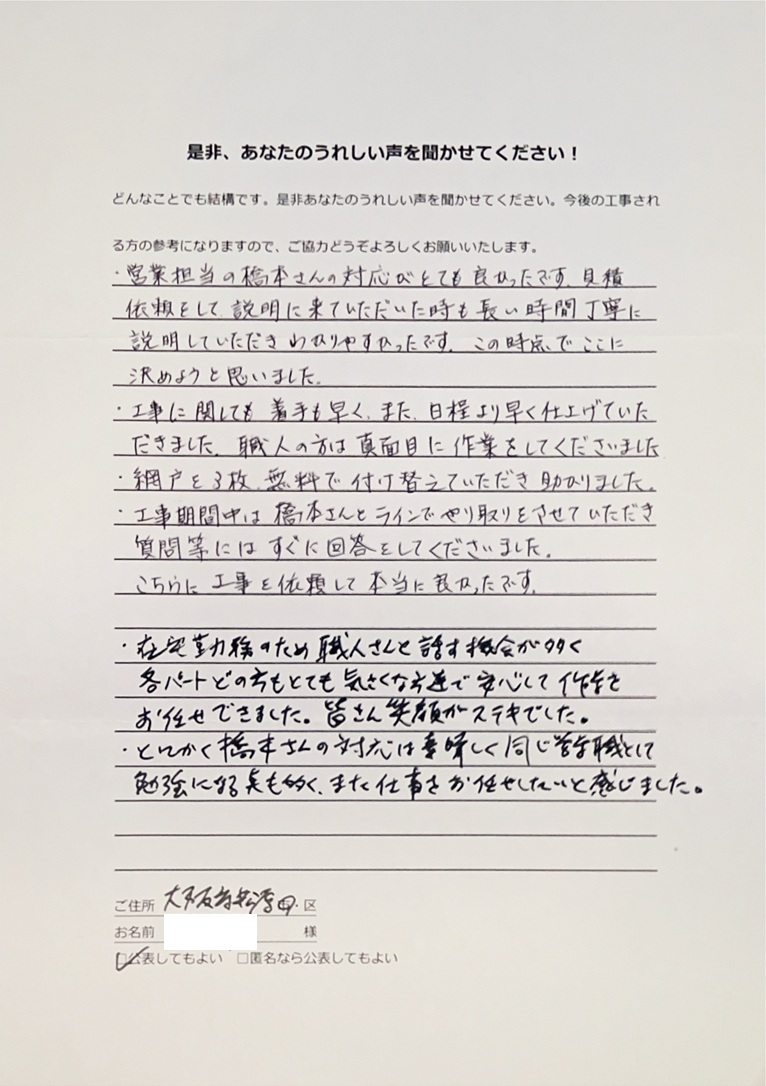 是非、あなたのうれしい声を聞かせてください！
どんなことでも結構です。是非あなたのうれしい声を聞かせてください。今後の工事され
る方の参考になりますので、ご協力どうぞよろしくお願いいたします。
・営業担当の橋本さんの対応がとても良かったです。見積
依頼をして説明に来ていただいた時も長い時間丁寧に
説明していただきわかりやすかったです。この時点でここに
決めようと思いました。
・工事に関しても着手も早く、また、日程より早く仕上げていた
だきました。職人の方は真面目に作業をしてくださいました
・網戸を3枚、無料で付け替えていただき助かりました。
・工事期間中は橋本さんとラインでやり取りをさせていただき
質問等にはすぐに回答をしてくださいました。
こちらに工事を依頼して本当に良かったです。
・在宅勤務のため職人さんと話す機会が多く
各パートどの方もとても気さくな方達で安心して作業を
お任せできました。皆さん笑顔がステキでした。
・とにかく橋本さんの対応は素晴しく同じ営業職として
勉強になる点も多く、また仕事をお任せしたいと感じました。
ご住所 大阪市 区
お名前 様
☑公表してもよい □匿名なら公表してもよい